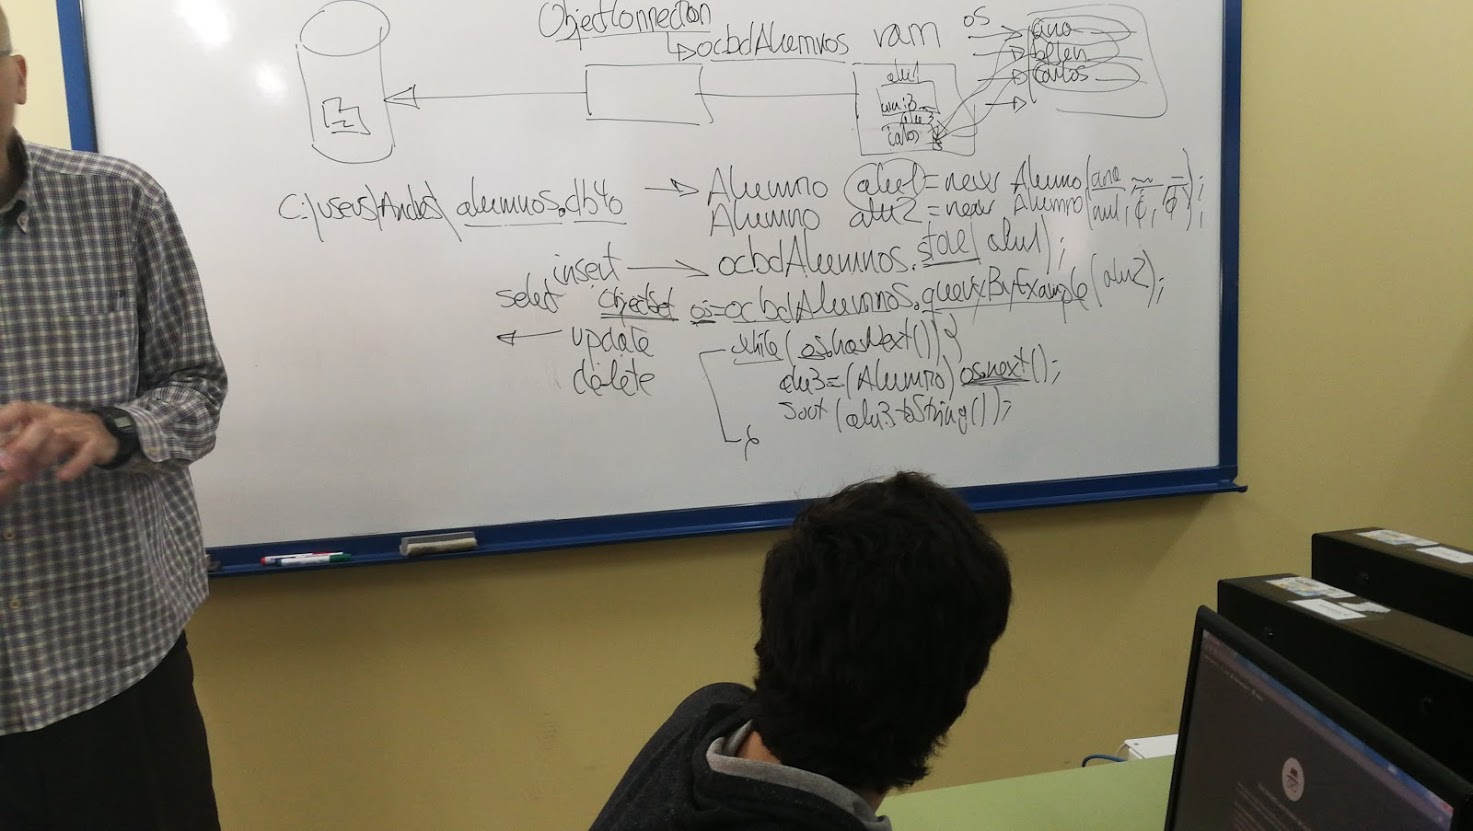 ObjectConnection
ocbdAlumnos ram os
alu1 ana
belen
alu3 carlos
C:\users\Andres\ alumnos.db4o → Alumno alu1 = new Alumno(ana, );
Alumno alu2 = new Alumno(null, 0, 0);
insert → ocbdAlumnos.store(alu1);
select ObjectSet os=ocbdAlumnos.queryByExample(alu2);
update while(os.hasNext()){
delete alu3=(Alumno) os.next();
sout(alu3.toString());
}